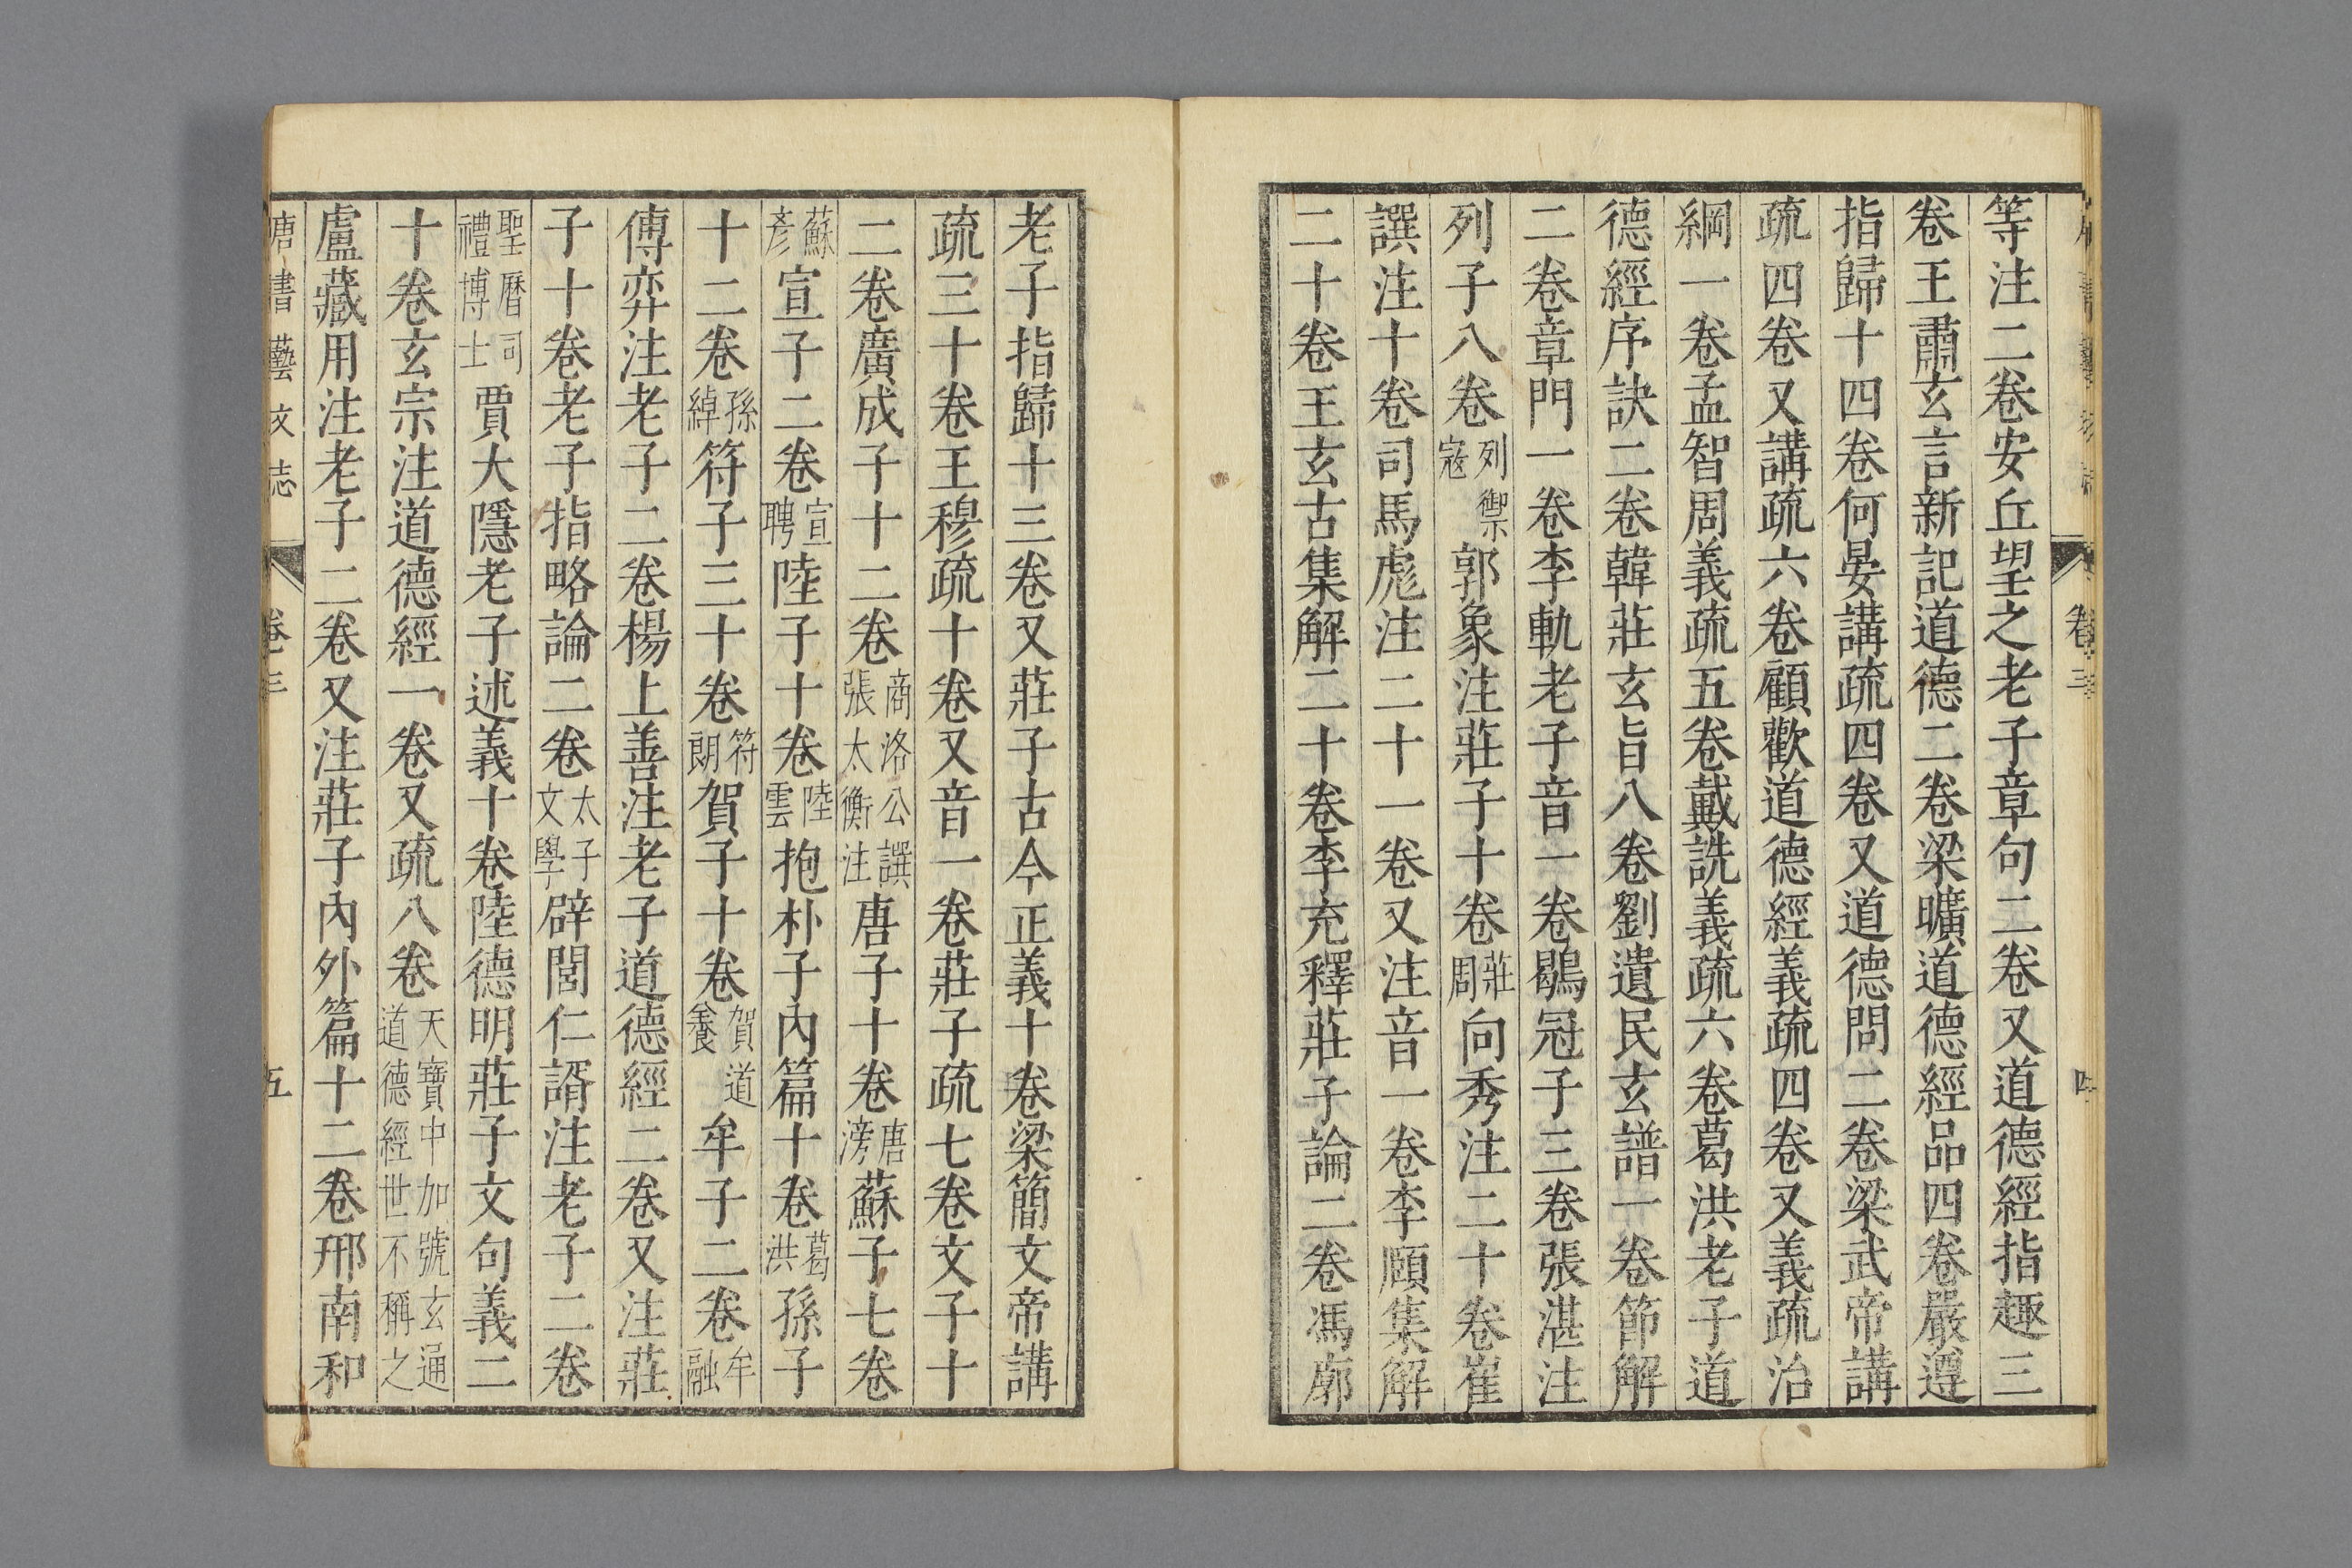 等注二卷安丘望之老子章句二卷又道德經指趣三
卷王肅玄言新記道德二卷梁曠道德經品四卷嚴遵
指歸十四卷何晏講疏四卷又道德問二卷梁武帝講
疏四卷又講疏六卷顧歡道德經義疏四卷又義疏治
綱一卷孟智周義疏五卷戴詵義疏六卷葛洪老子道
德經序訣二卷韓莊玄旨八卷劉遺民玄譜一卷節解
二卷章門一卷李軌老子音一卷鶡冠子三卷張湛注
列子八卷列禦寇郭象注莊子十卷莊周向秀注二十卷崔
譔注十卷司馬彪注二十一卷又注音一卷李頤集解
二十卷王玄古集解二十卷李充釋莊子論二卷馮廓
老子指歸十三卷又莊子古今正義十卷梁簡文帝講
疏三十卷王穆疏十卷又音一卷莊子疏七卷文子十
二卷廣成子十二卷商洛公譔張太衡注唐子十卷唐滂蘇子七卷
蘇彥宣子二卷宣聘陸子十卷陸雲抱朴子內篇十卷葛洪孫子
十二卷孫綽符子三十卷符朗賀子十卷賀道養牟子二卷牟融
傅弈注老子二卷楊上善注老子道德經二卷又注莊
子十卷老子指略論二卷太子文學辟閭仁諝注老子二卷
聖曆司禮博士賈大隱老子述義十卷陸德明莊子文句義二
十卷玄宗注道德經一卷又疏八卷天寶中加號玄通道德經世不稱之
盧藏用注老子二卷又注莊子內外篇十二卷邢南和
唐書藝文志 卷三 五